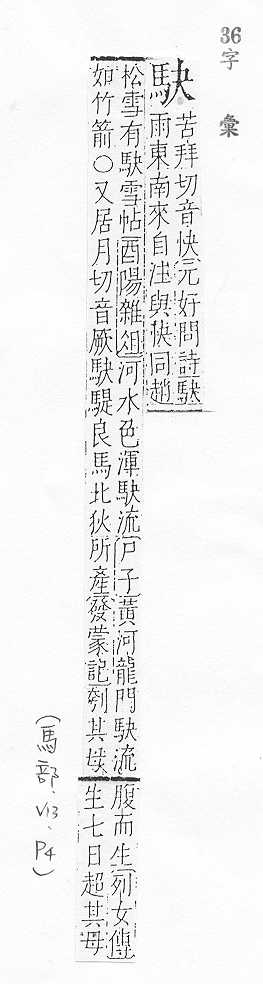 36
字彙
駃
苦拜切音快元好問詩駃
雨東南來自注與快同趙
松雪有駃雪帖酉陽雜俎河水色渾駃流尸子黃河龍門駃流
如竹箭○又居月切音厥駃騠良馬北狄所產發蒙記刳其母
腹而生列女傳
生七日超其母
(馬部.V13.P4)